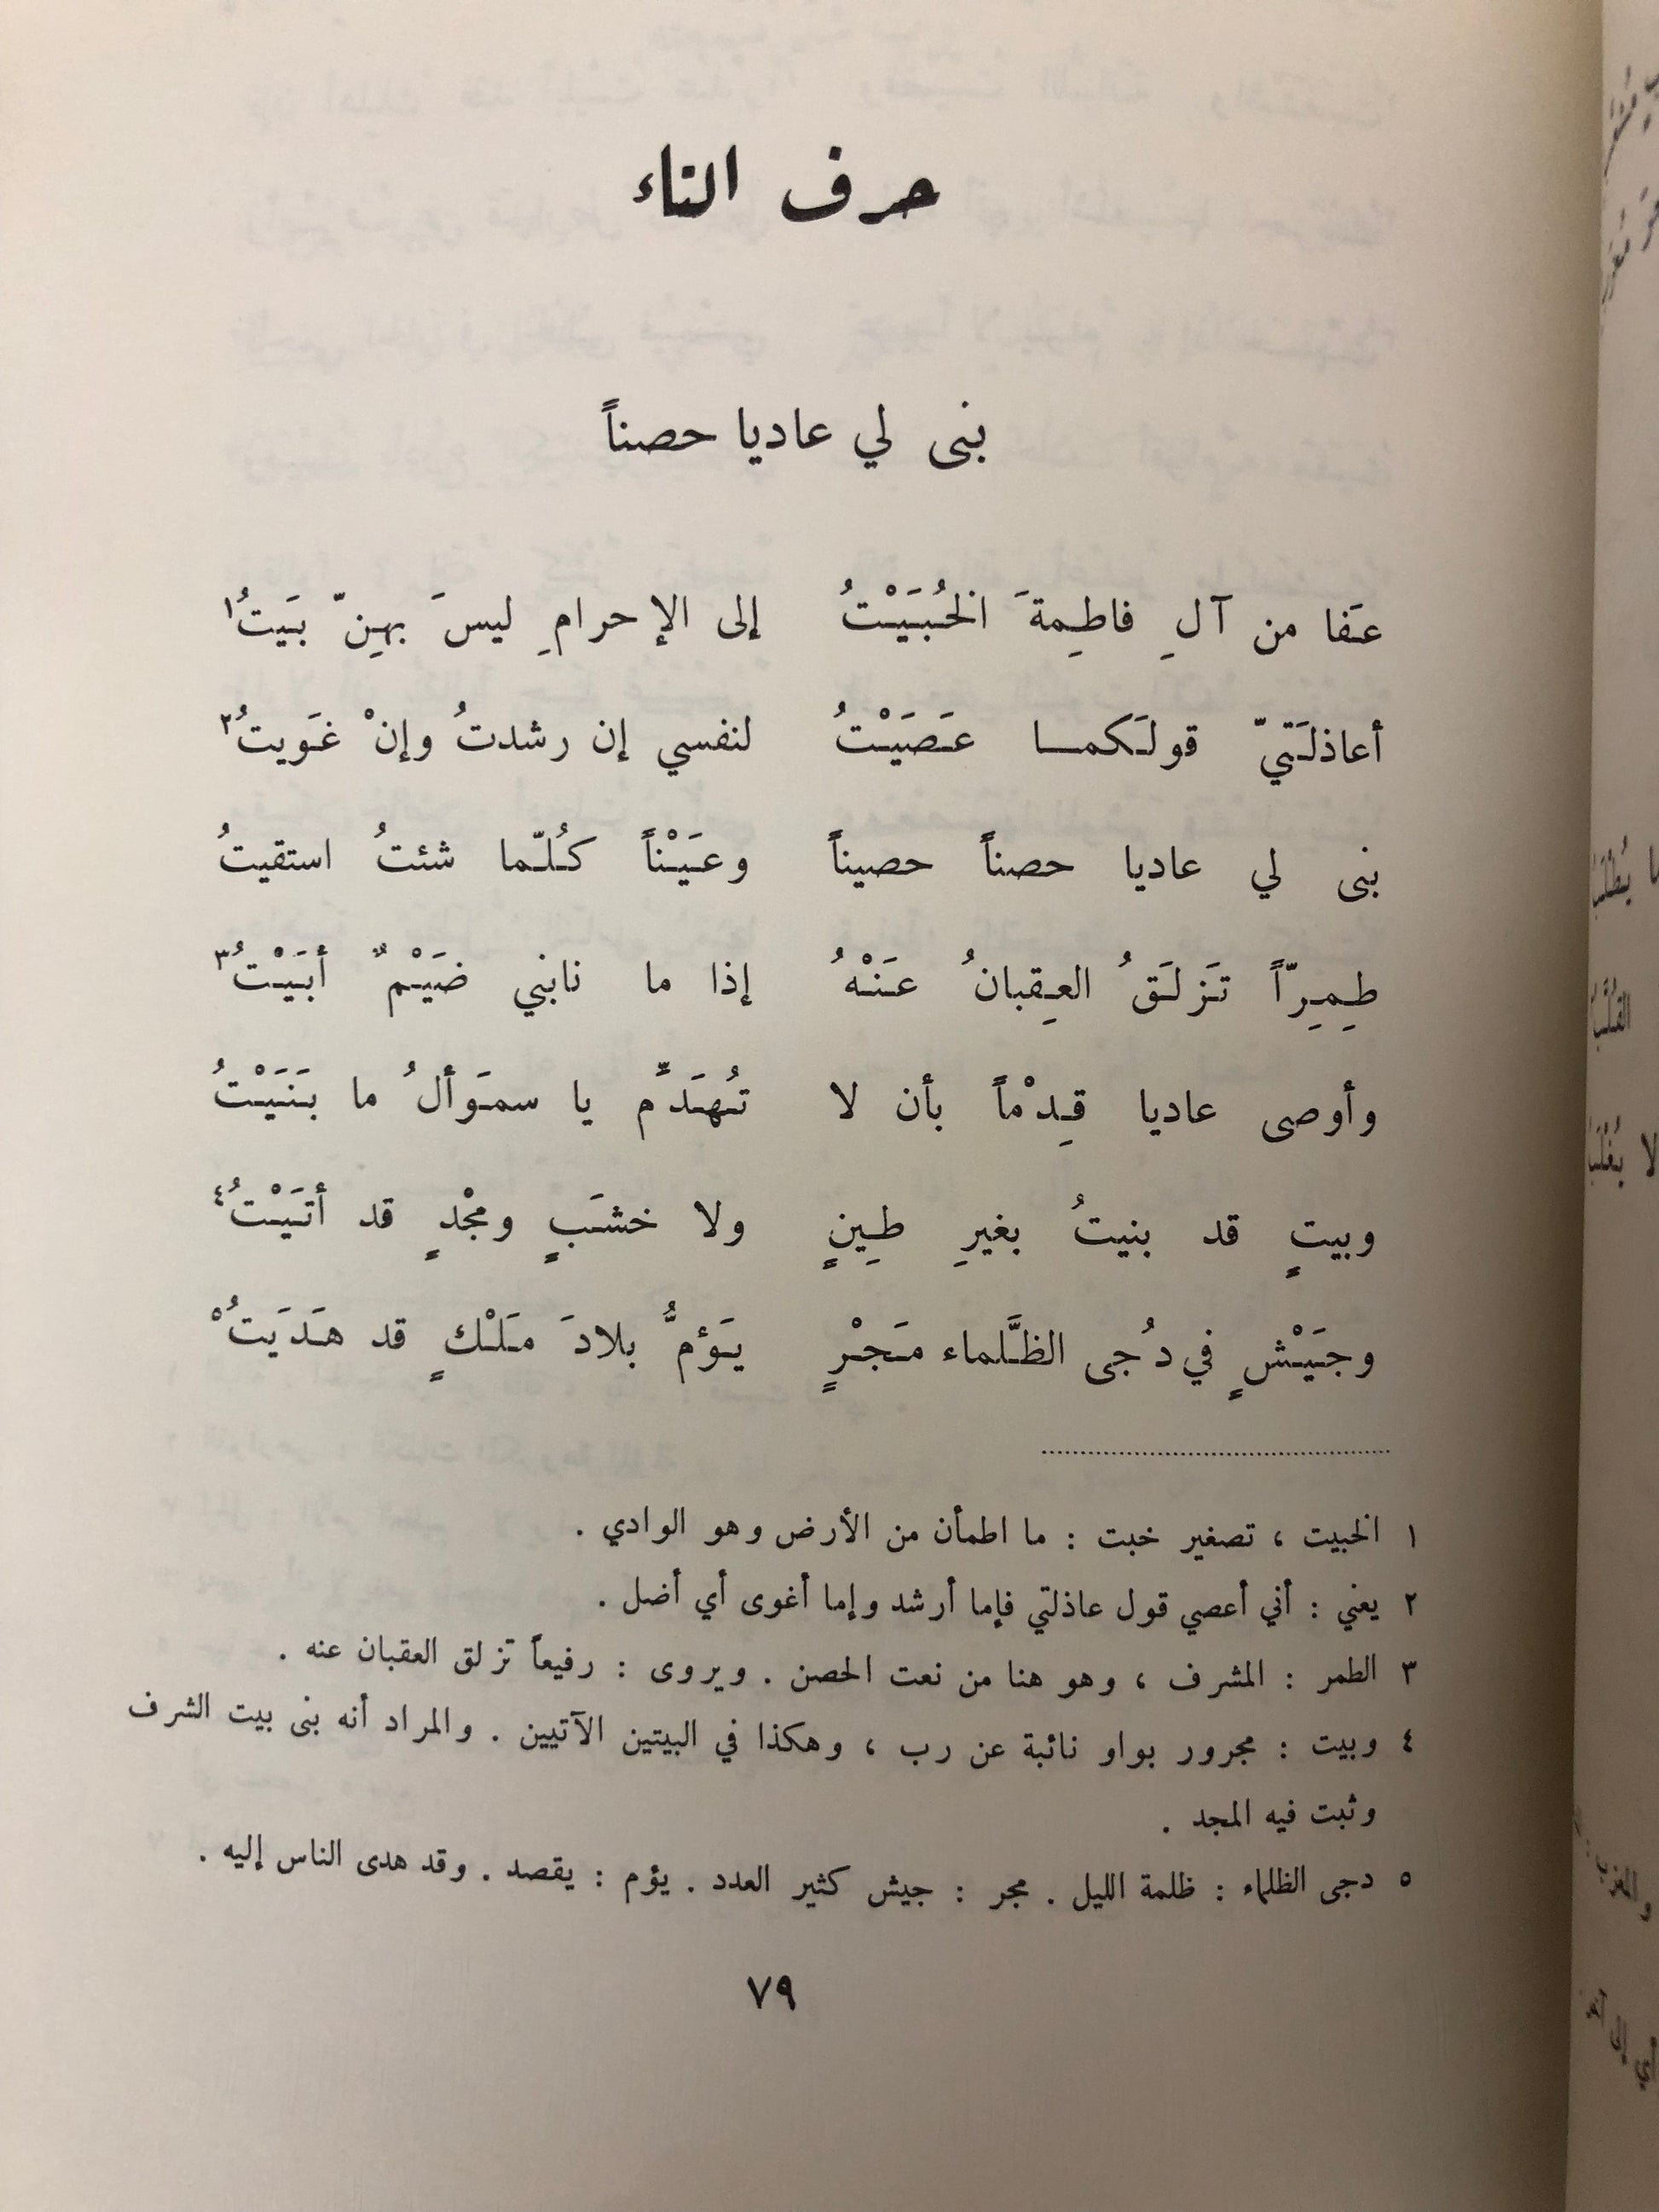 حرف التاء
بنى لي عاديا حصناً
عَفا من آلِ فاطِمةَ الخُبَيْتُ إلى الإحرامِ ليسَ بهِنّ بَيتُ١
أعاذلَتَيّ قولَكما عَصَيْتُ لنفسي إن رشدتُ وإنْ غَويتُ٢
بنى لي عاديا حصناً حصيناً وعَيْناً كُلّما شئتُ استقيتُ
طِمِرّاً تَزلَقُ العِقبانُ عَنْهُ إذا ما نابني ضَيْمٌ أبَيْتُ٣
وأوصى عاديا قِدْماً بأن لا تُهَدِّم يا سموَألُ ما بَنَيْتُ
وبيتٍ قد بنيتُ بغيرِ طِينٍ ولا خشَبٍ ومجْدٍ قد أتَيْتُ٤
وجَيْشٍ في دُجى الظَّلماء مَجْرٍ يَؤمُّ بلادَ مَلْكٍ قد هَدَيتُ٥
١ الخبيت ، تصغير خبت : ما اطمأن من الأرض وهو الوادي .
٢ يعني : أني أعصي قول عاذلتي فإما أرشد وإما أغوى أي أضل .
٣ الطمر : المشرف ، وهو هنا من نعت الحصن . ويروى : رفيعاً تزلق العقبان عنه .
٤ وبيت : مجرور بواو نائبة عن رب ، وهكذا في البيتين الآتيين . والمراد أنه بنى بيت الشرف
وثبت فيه المجد .
٥ دجى الظلماء : ظلمة الليل . مجر : جيش كثير العدد . يؤم : يقصد . وقد هدى الناس إليه .
٧٩